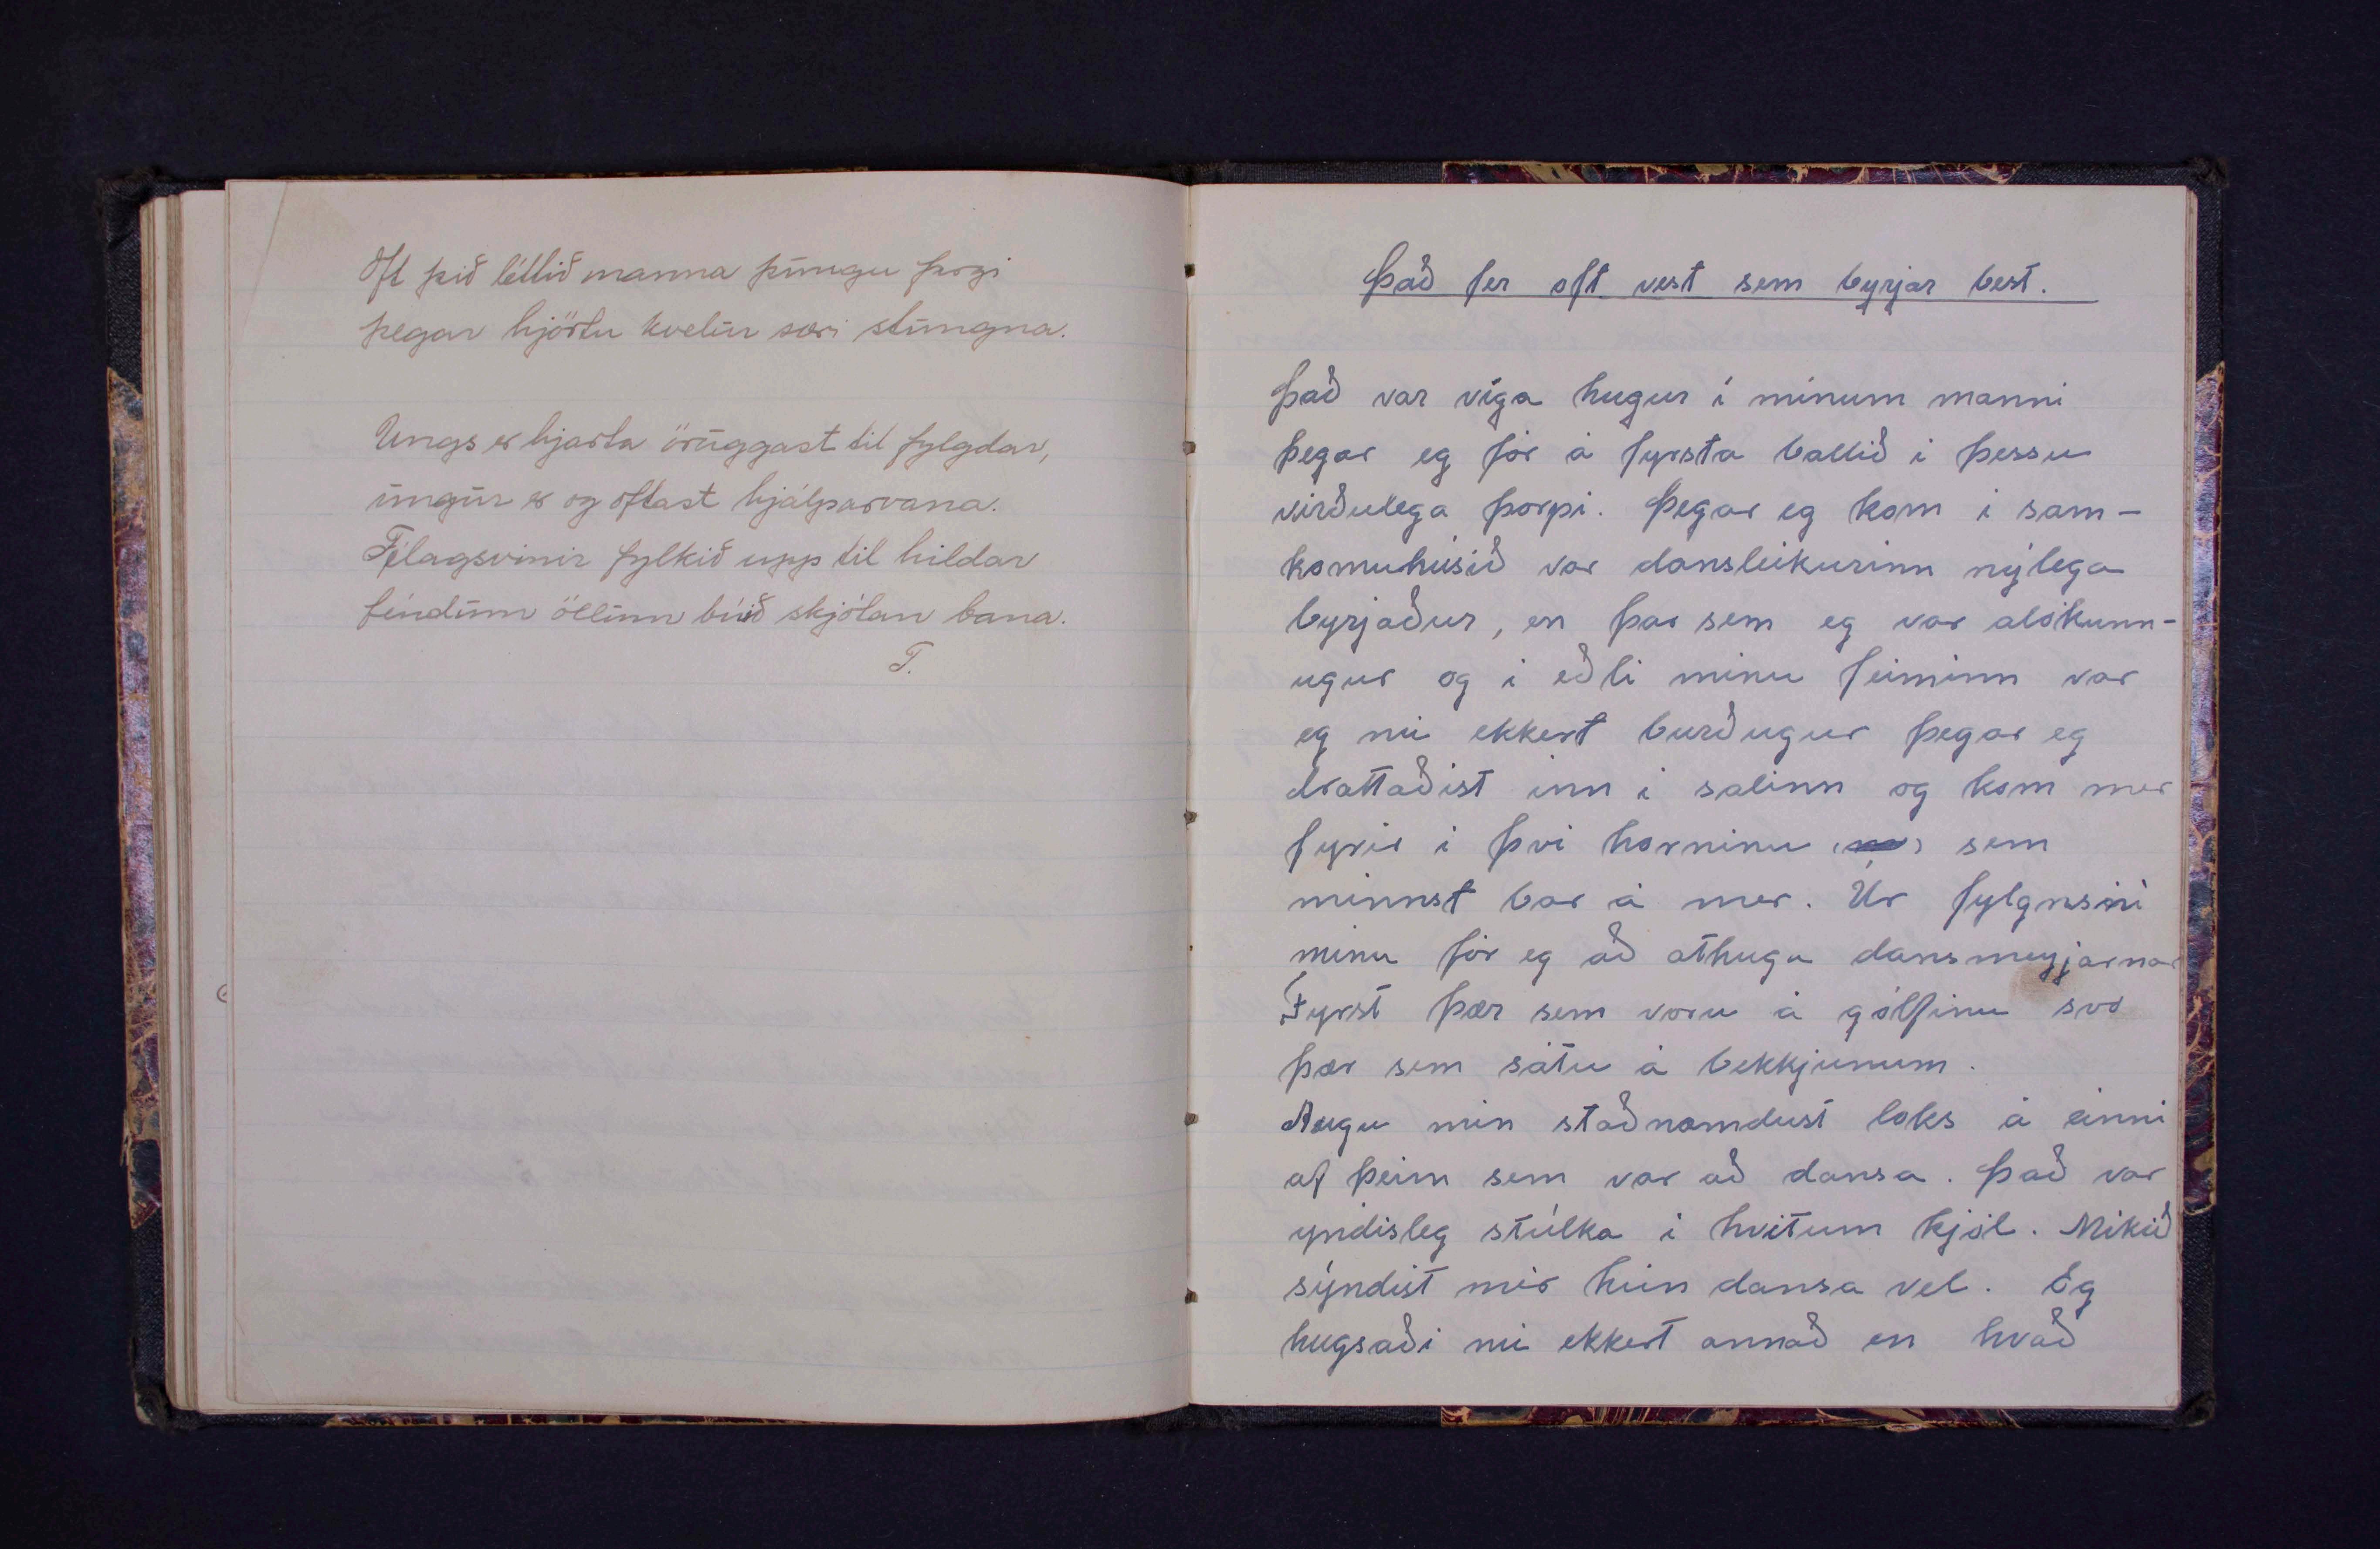 Oft þið léttið manna þúngu fargi
þegar hjörtu kvelur sori stúngna.
Ungs er hjarta örúggast til fylgdar,
úngúr er og oftast hjálparvana.
Félagsvinir fylkið upp til hildar
féndúm öllúm búið skjótan bana.
T.
Það fer oft vest sem byrjar best.
Það var víga hugur í mínum manni
þegar eg fór á fyrsta ballið í þessu
virðulega þorpi. Þegar eg kom í sam-
komuhúsið var dansleikurinn nýlega
byrjaður, en þar sem eg var alókunn-
ugur og í eðli mínu feiminn var
eg nú ekkert burðugur þegar eg
drattaðist inn í salinn og kom mer
fyrir í því horninu sem
minnst bar á mer. Úr fylgnsni
mínu fór eg að athuga dansmeyjarnar
Fyrst þær sem voru á gólfinu svo
þær sem sátu á bekkjunum.
Augu mín staðnæmdust loks á einni
af þeim sem var að dansa. Það var
yndisleg stúlka í hvítum kjól. Mikið
sýndist mér hún dansa vel. Eg
hugsaði nú ekkert annað en hvað